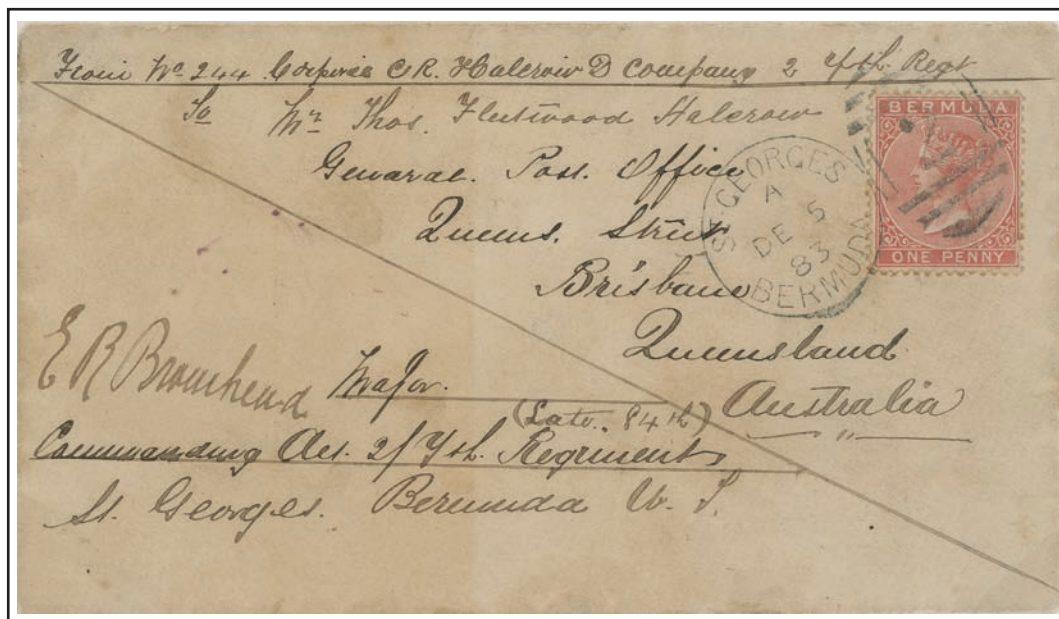 From No 244 Corporal C R. Halcrow D Company 2 Yth. Regt
To Mr Thos. Fleetwood Halcrow
General. Post. Office
Queens. Street
Brisbane
Queensland
Australia
BERMUDA
ONE PENNY
ST. GEORGES
A
DE 5
83
BERMUDA
E R Bromhead Major.
(Late. 84th)
Commanding Det. 2/Yth. Regiment
St. Georges. Bermuda W. I.